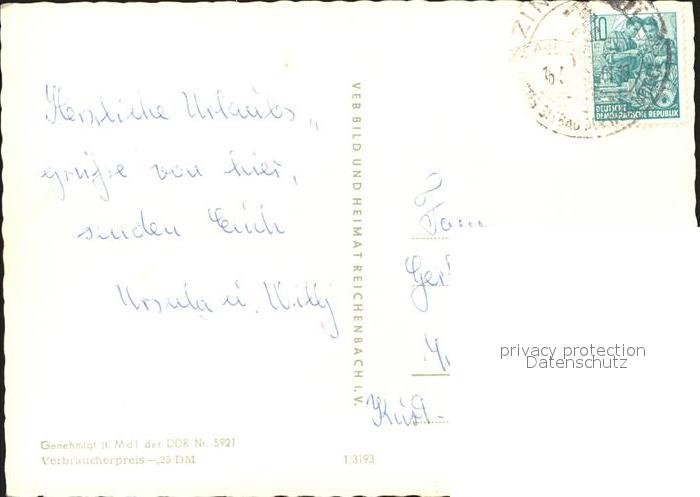 Herzliche Urlaubs„
grüße von hier,
senden Euch
Ursula u. Willy
VEB BILD UND HEIMAT REICHENBACH I. V.
10
DEUTSCHE
DEMOKRATISCHE REPUBLIK
Fam
privacy protection
Datenschutz
Genehmigt lt. MdI der DDR Nr. 5921
Verbraucherpreis —,25 DM
1/3193